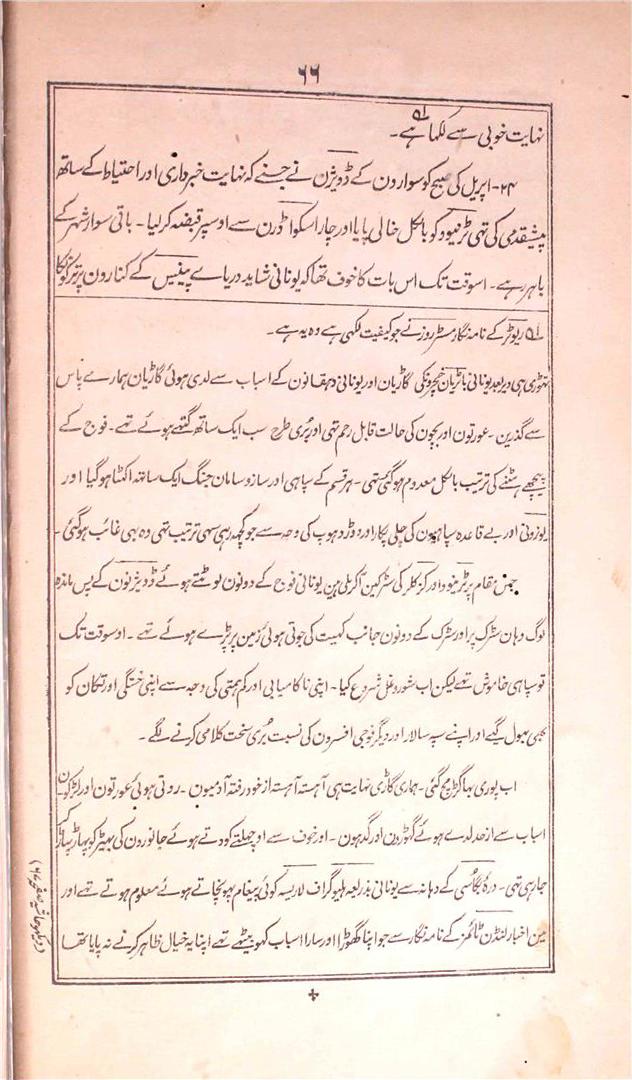 ۶۶
نہایت خوبی سے لکھا ہے۔
۲۴۔ اپریل کی صبح کو سوارون کے ڈویژن نے جسنے کہ نہایت خبرداری اور احتیاط کے ساتھ
پیشقدمی کی تہی ٹرنیوو کو بالکل خالی پایا اور چار اسکواڈرن سے اوسپر قبضہ کر لیا۔ باقی سوار شہر کے
باہر رہے۔ اسوقت تک اس بات کا خوف تھا کہ یونانی شاید دریاے پینیس کے کنارون پر
ریوٹر کے نامہ نگار مسٹر روز نے جو کیفیت لکہی ہے وہ یہ ہے۔
تہوڑی ہی دیر بعد یونانی باٹریان خچرونکی گاڑیان اور یونانی دہقانون کے اسباب سے لدی ہوئی گاڑیان ہمارے پاس
سے گذرین۔ عورتون اور بچون کی حالت قابل رحم تہی اور بُری طرح سب ایک ساتھ گتہے ہوئے تہے۔ فوج کے
پیچہے ہٹنے کی ترتیب بالکل معدوم ہو گئی تہی۔ ہر قسم کے سپاہی اور ساز و سامان جنگ ایک ساتھ اکٹا ہو گیا اور
یوزونی اور بے قاعدہ سپاہیون کی چلی پکار اور دوڑ دہوپ کی وجہ سے جو کچہ رہی سہی ترتیب تہی وہ بہی غائب ہو گئی۔
جس مقام پر ٹرنیوو اور کزکلر کی سڑکین آکر ملی ہین یونانی فوج کے دونون لوٹتے ہوئے ڈویژنون کے پس ماندہ
لوگ وہان سڑک پر اور سڑک کے دونون جانب کہیت کی جوتی ہوئی زمین پر پڑے ہوئے تہے۔ اوسوقت تک
تو سپاہی خاموش تہے لیکن اب شور و غل شروع کیا۔ اپنی ناکامیابی اور کم ہمتی کی وجہ سے اپنی خستگی اور تکان کو
بھی بہول گیے اور اپنے سپہ سالار اور دیگر فوجی افسرون کی نسبت بُری سخت کلامی کرنے لگے۔
اب پوری بہاگڑ مچ گئی۔ ہماری گاڑی نہایت ہی آہستہ آہستہ از خود رفتہ آدمیون۔ روتی ہوئی عورتون اور لڑکون
اسباب سے از حد لدے ہوئے گہوڑون اور گدہون۔ اور خوف سے اوچہلتے کودتے ہوئے جانورون کی بہیڑ کو پہاڑ پہاڑ کے
جارہی تہی۔ درۂ بگائسی کے دہانہ سے یونانی بذریعہ ہلیوگراف لاریسہ کوئی پیغام پہونچاتے ہوئے معلوم ہوتے تہے اور
مین اخبار لنڈن ٹائمز کے نامہ نگار سے جو اپنا گھوڑا اور سارا اسباب کہو بیٹہے تہے اپنا یہ خیال ظاہر کرنے نہ پایا تھا
(دیکہو حاشیہ صفحہ ۶۷)